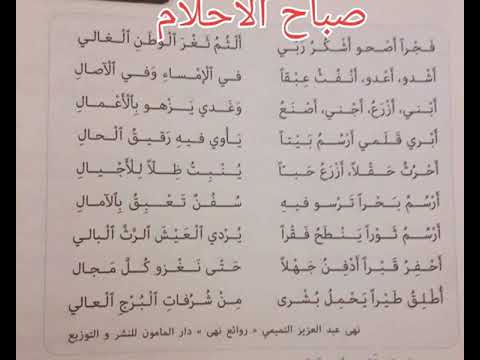 صباح الاحلام
فَجْراً أَصْحو أَشْكُرُ رَبّي أَلْثُمُ ثَغْرَ ٱلْوَطَنِ ٱلْغالي
أَشْدو، أَعْدو، أَنْفُثُ عِبْقاً في ٱلْإِمْساءِ وَفي ٱلْآصالِ
أَبْني، أَزْرَعُ، أَجْني، أَصْنَعُ وَغَدي يَزْهو بِٱلْأَعْمالِ
أَبْري قَلَمي أَرْسُمُ بَيْتاً يَأْوي فيهِ رَقيقُ ٱلْحالِ
أَحْرُثُ حَقْلاً، أَزْرَعُ حَبّاً يُنْبِتُ ظِلّاً لِلْأَجْيالِ
أَرْسُمُ بَحْراً تَرْسو فيهِ سُفُنٌ تَعْبِقُ بِٱلْآمالِ
أَرْسُمُ ثَوْراً يَنْطَحُ فَقْراً يُرْدي ٱلْعَيْشَ ٱلرَّثَّ ٱلْبالي
أَحْفِرُ قَبْراً أَدْفِنُ جَهْلاً حَتّى نَغْزو كُلَّ مَجال
أُطْلِقُ طَيْراً يَحْمِلُ بُشْرى مِنْ شُرُفاتِ ٱلْبُرْجِ ٱلْعالي
نهى عبد العزيز التميمي « روائع نهى » دار المامون للنشر و التوزيع